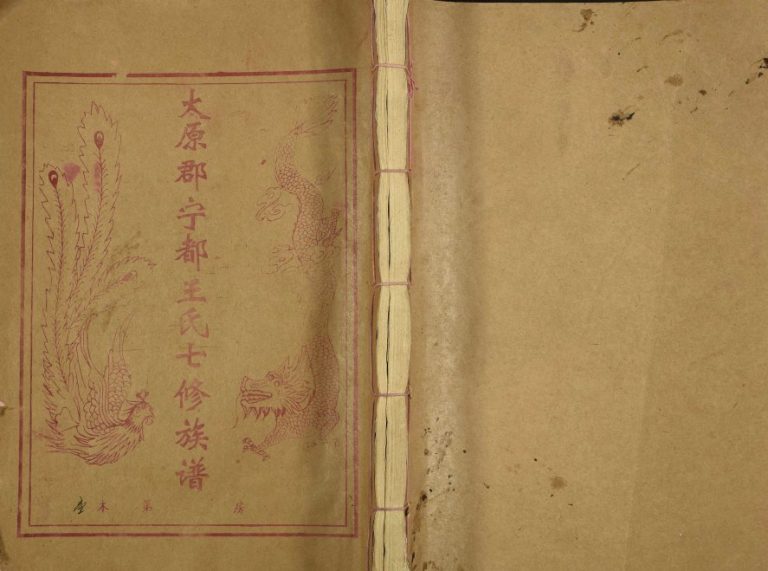 太原郡宁都王氏七修族谱
房 第 本